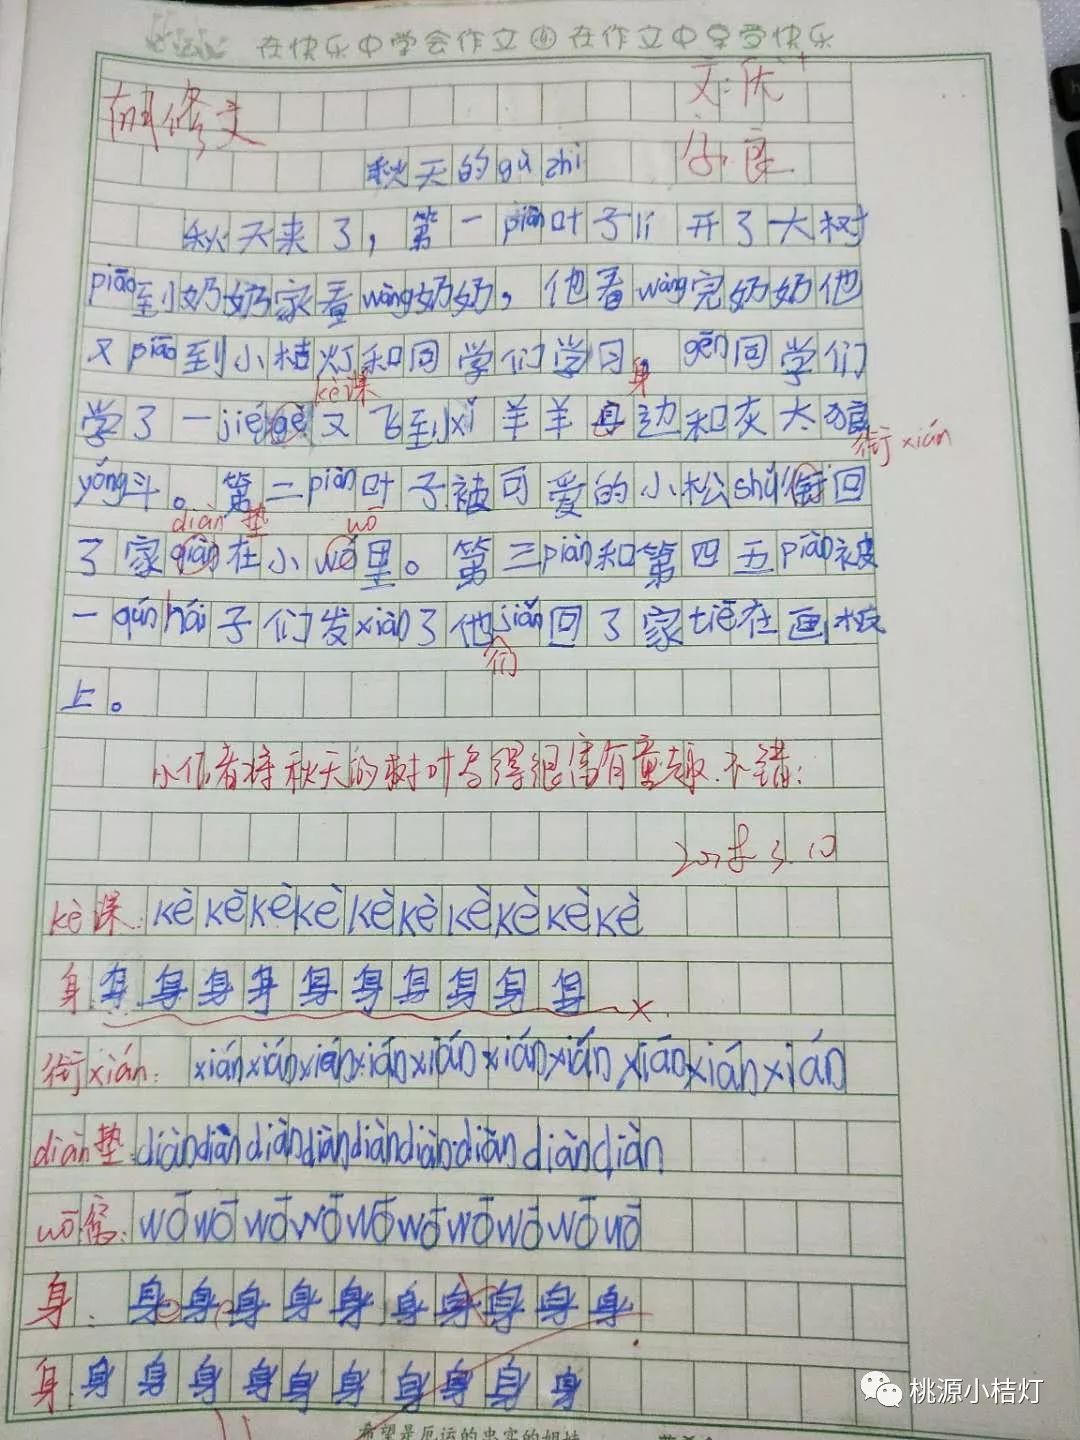 在快乐中学会作文 在作文中享受快乐
文:优+
胡修文
书:良
秋天的gù shi
秋天来了，第一piàn叶子lí开了大树
piāo到奶奶家看wàng奶奶，他看wàng完奶奶他
又piāo到小桔灯和同学们学习 gēn同学们
kè课 身
学了一jié 又飞到xǐ羊羊 边和灰太狼
衔xián
yǒng斗。第二piàn叶子被可爱的小松shǔ衔回
diàn 垫 wō
了家 在小wō里。第三piàn和第四五piàn被
一qún hái子们发xiàn了他jiǎn回了家tiē在画板
们
上。
小作者将秋天的树叶写得很富有童趣.不错!
3.10
kè课:kè kè kè kè kè kè kè kè kè kè
身 身 身 身 身 身 身 身 身 身 身
衔xián: xián xián xián xián xián xián xián xián xián xián
diàn垫:diàn diàn diàn diàn diàn diàn diàn diàn diàn
wō窝:wō wō wō wō wō wō wō wō wō wō
身: 身 身 身 身 身 身 身 身 身 身
身 身 身 身 身 身 身 身 身 身 身
希望是厄运的忠实的姐妹
桃源小桔灯